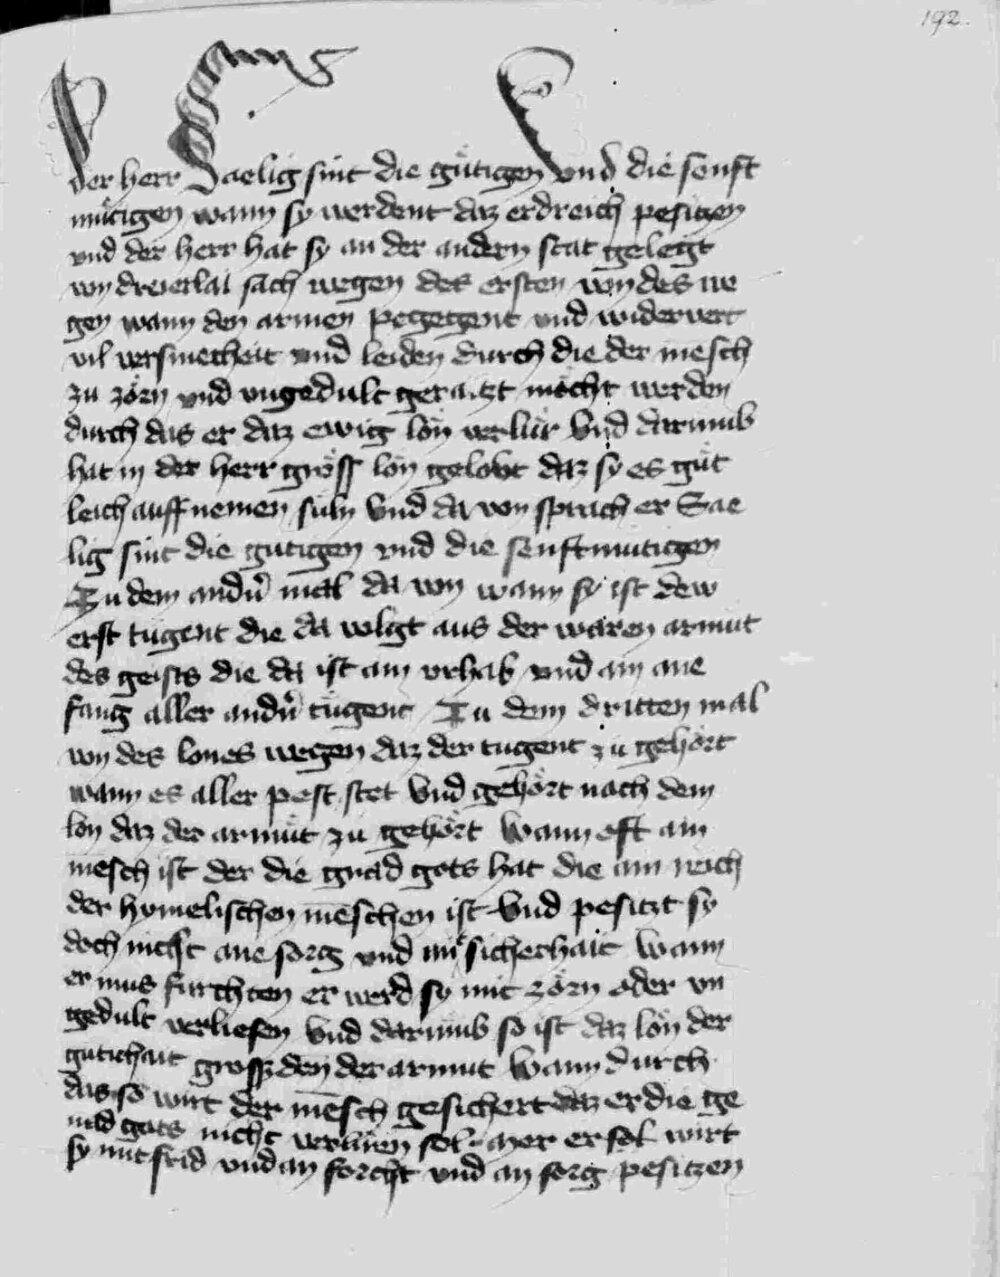 192.
der herr Saelig sint die gütigen vnd die senft
mütigen wann sy werdent daz erdreich pesitzen
vnd der herr hat sy an der andern stat gelegt
von dreierlai sach wegen des ersten von des we
gen wann den armen pegegent vnd widervert
vil versmecheit vnd leiden durch die der mēsch
zu zörn vnd vngedult geraitzt möcht werden
durch das er daz ewig lon verlür Vnd darumb
hat in der herr gröss lon gelobt daz sy es güt
leich auffnemen süln Vnd da von sprach er Sae
lig sint die gütigen vnd die senftmütigen
Zu dem andern mal da von wann sy ist dew
erst tugent die da volgt aus der waren armüt
des geists die da ist ain vrhab vnd ain ane
fang aller andern tugent Zu dem dritten mal
von des lones wegen daz der tugent zu gehört
wann es aller pest stet Vnd gehört nach dem
lon daz der armüt zu gehört Wann oft ain
mēsch ist der die gnad gots hat die ain reich
der himelischen mēschen ist Vnd pesitzt sy
doch nicht ane sorg vnd mit sicherhait Wann
er mus furchten er werd sy mit zörn oder vn
gedult verliesen Vnd darumb so ist daz lon der
gütichait grosser den der armut Wann durch
das so wirt der mēsch gesichert daz er die ge
nad gots nicht verliesen sol mer er sol wirt
sy mit frid vnd an forcht vnd an sorg pesitzen